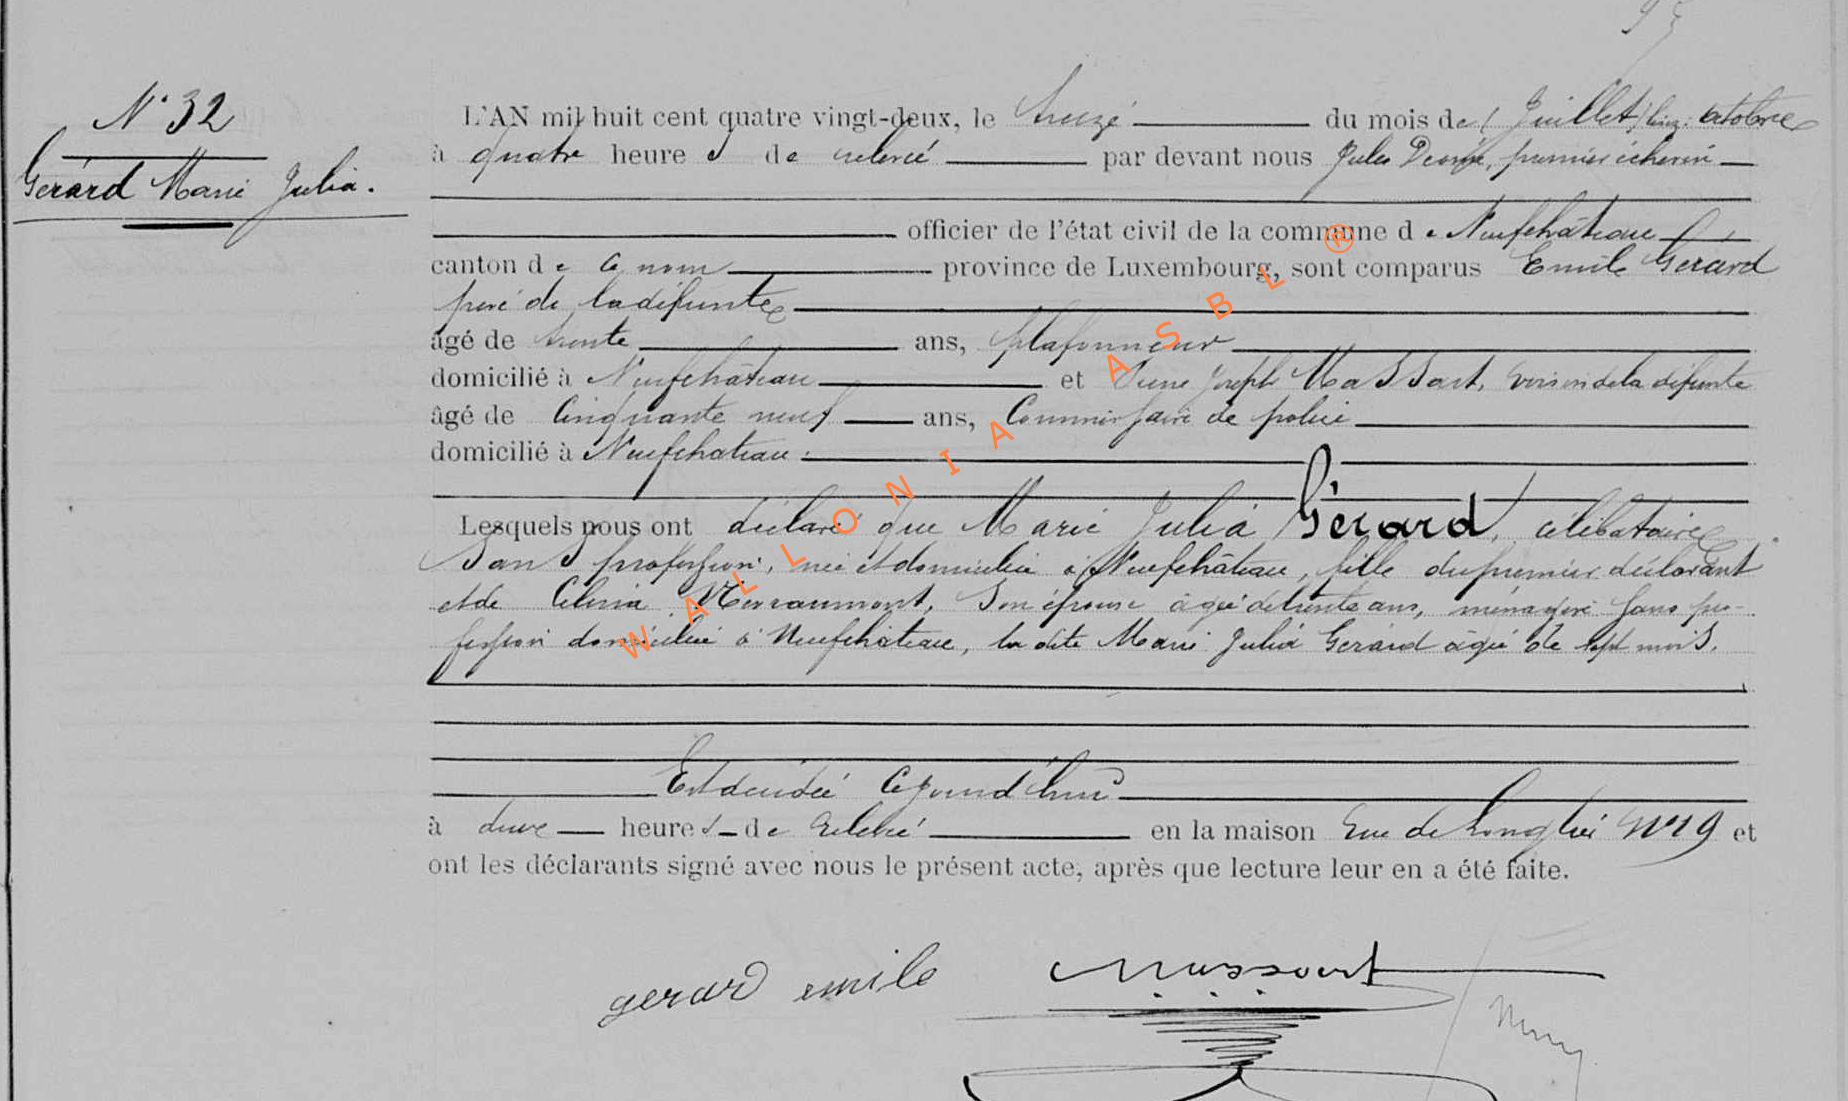 N° 32
Gerard Marie Julia.
L'AN mil huit cent quatre vingt-deux, le treize du mois de (Juillet) octobre
à quatre heures de relevé par devant nous Jules premier échevin
officier de l'état civil de la commune de Neufchâteau
canton de ce nom province de Luxembourg, sont comparus Emile Gerard
père de la défunte
âgé de trente ans, plafonneur
domicilié à Neufchâteau et Joseph Massart, voisin de la défunte
âgé de Cinquante neuf ans, Commissaire de police
domicilié à Neufchateau.
Lesquels nous ont déclaré que Marie Julia Gérard, célibataire
Sans profession, née et domiciliée à Neufchâteau, fille du premier déclarant
et de Son épouse âgée de trente ans, ménagère sans pro-
fession domiciliée à Neufchâteau, la dite Marie Julia Gerard âgée de sept mois.
Est décédée Cejourd'hui
à deux heures de relevé en la maison Rue de N° 19 et
ont les déclarants signé avec nous le présent acte, après que lecture leur en a été faite.
gerard emile Massart
WALLONIA ASBL ®